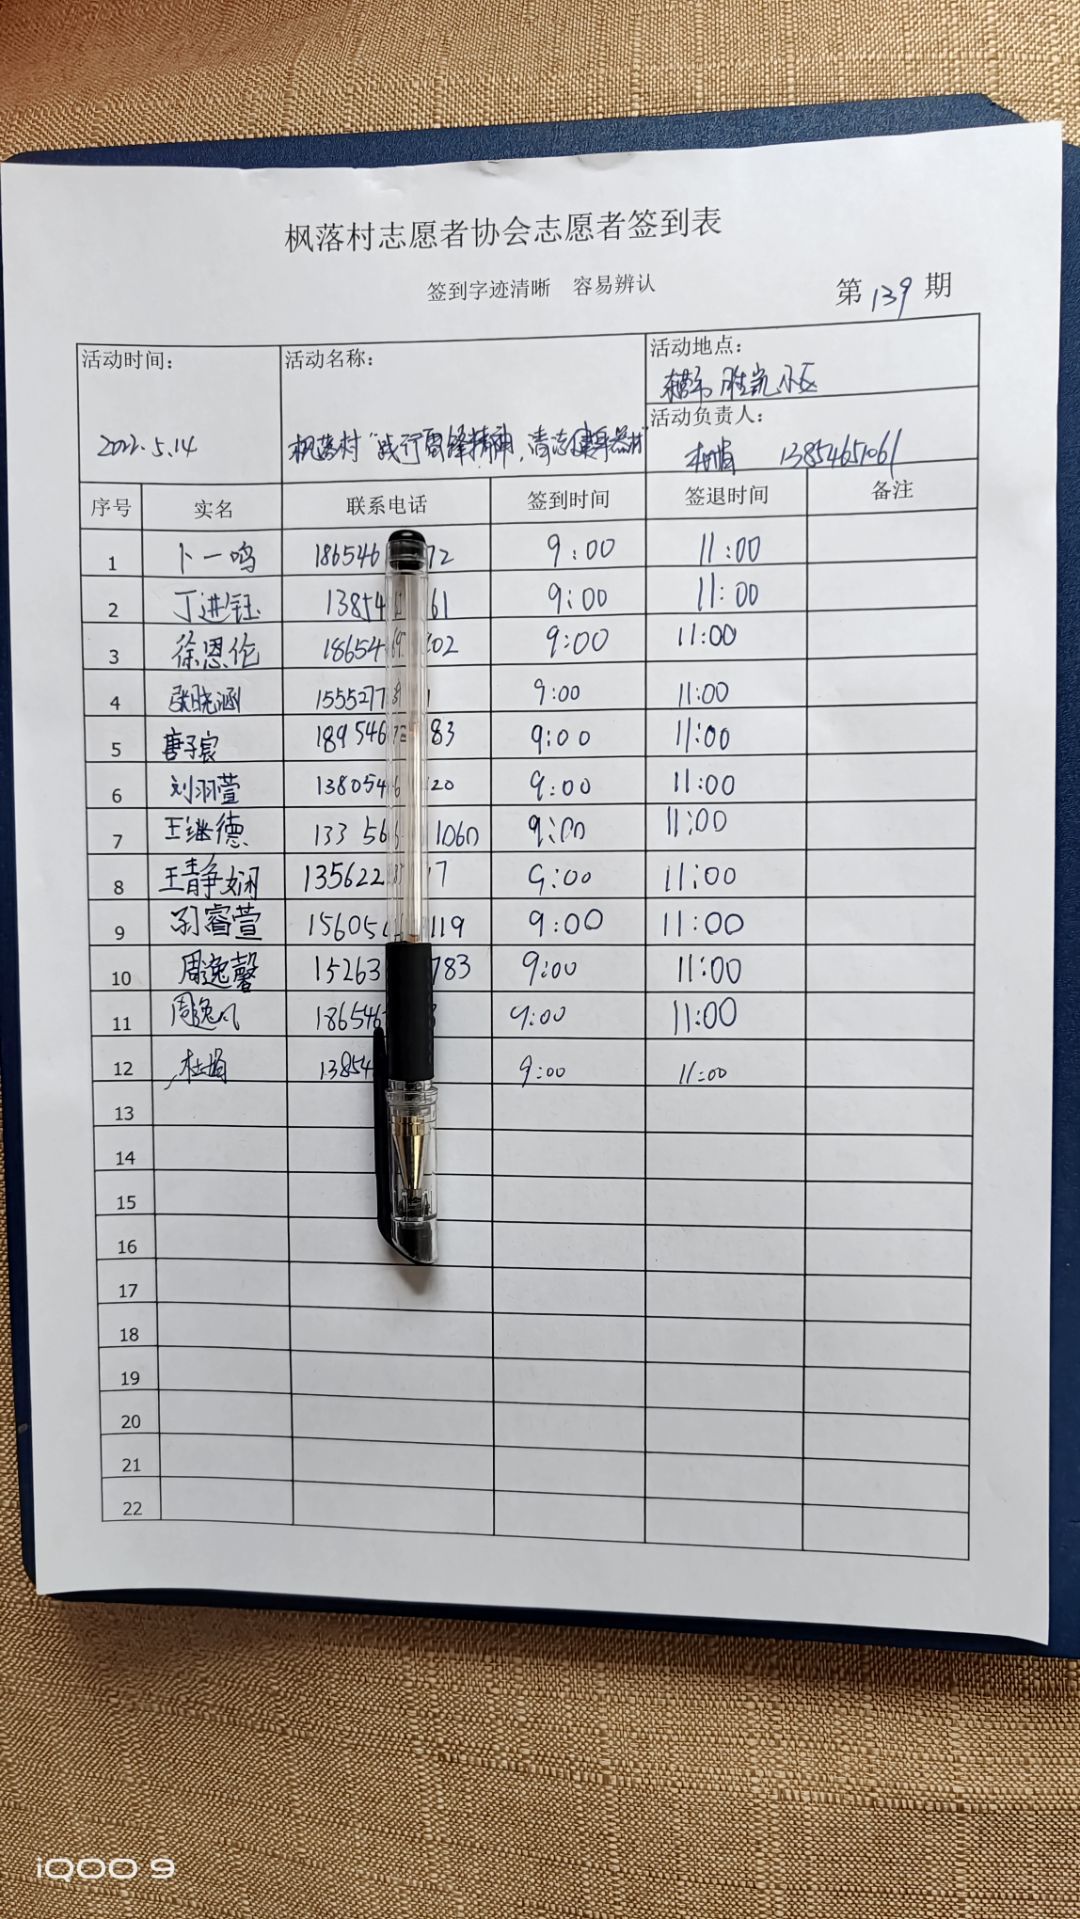 枫落村志愿者协会志愿者签到表
签到字迹清晰 容易辨认
第139期
活动时间: 活动名称: 活动地点:
胜凯小区
活动负责人:
2022.5.14 枫落村“践行雷锋精神,清志健身器材” 13854651061
序号 实名 联系电话 签到时间 签退时间 备注
1 卜一鸣 186546 72 9:00 11:00
2 丁进钰 13854 61 9:00 11:00
3 徐恩伦 18654 02 9:00 11:00
4 张晓涵 1555277 1 9:00 11:00
5 唐子宸 189546 83 9:00 11:00
6 刘羽萱 138054 20 9:00 11:00
7 王继德 133 56 1060 9:00 11:00
8 王静娴 135622 7 9:00 11:00
9 孙睿萱 15605 119 9:00 11:00
10 周逸馨 15263 783 9:00 11:00
11 周逸凡 186546 9:00 11:00
12 13854 9:00 11:00
13
14
15
16
17
18
19
20
21
22
iQOO 9